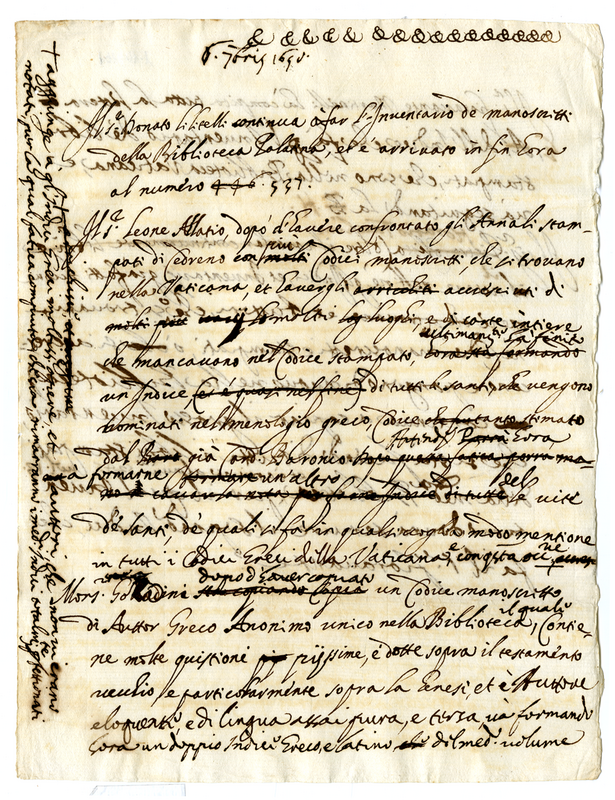 & & & & & & & & & & & & & & & & &
6. 7bris 1658.
Il Sr. Donato Lilitelli continua à far l'Inventario de manoscritti
della Biblioteca Palatina, et è arrivato in fin hora
al numero 446. 537.
Il Sr. Leone Allatio, dopò d'havere confrontato gli Annali stam-
pati di Cedreno con molti più Codici manoscritti, che si trovano
nella Vaticana, et havergli arricchiti accresciuti di
molti più molti luoghi, e di carte intiere
che mancavono nel Codice stampato, ultimamte. ha finito
un Indice di tutti li santi, che vengono
nominati nel menologio greco, Codice stimato
dal già Card. Baronio hora
và formarne un'altro
del le vite
de santi, de quali si fa in qualsivoglia modo mentione
in tutti i Codici Greci della Vaticana, e con questa
Mons. dopo d'haver copiato un Codice manoscritto
di Auttor Greco Anonimo unico nella Biblioteca, il quale contie-
ne molte quistioni piissime, e dotte sopra il testamento
vecchio e particolarmente sopra la Genesi, et è Auttore
eloquente e di lingua assai pura, e tersa, và formando
hora un doppio Indice Greco, e latino del med.o volume
+ aggiunge a gl'Indici Greci molte opere, et Auttori, che non vi erano
notati, per la qual fatica compiuta che sia rimarranno i med.i Indici